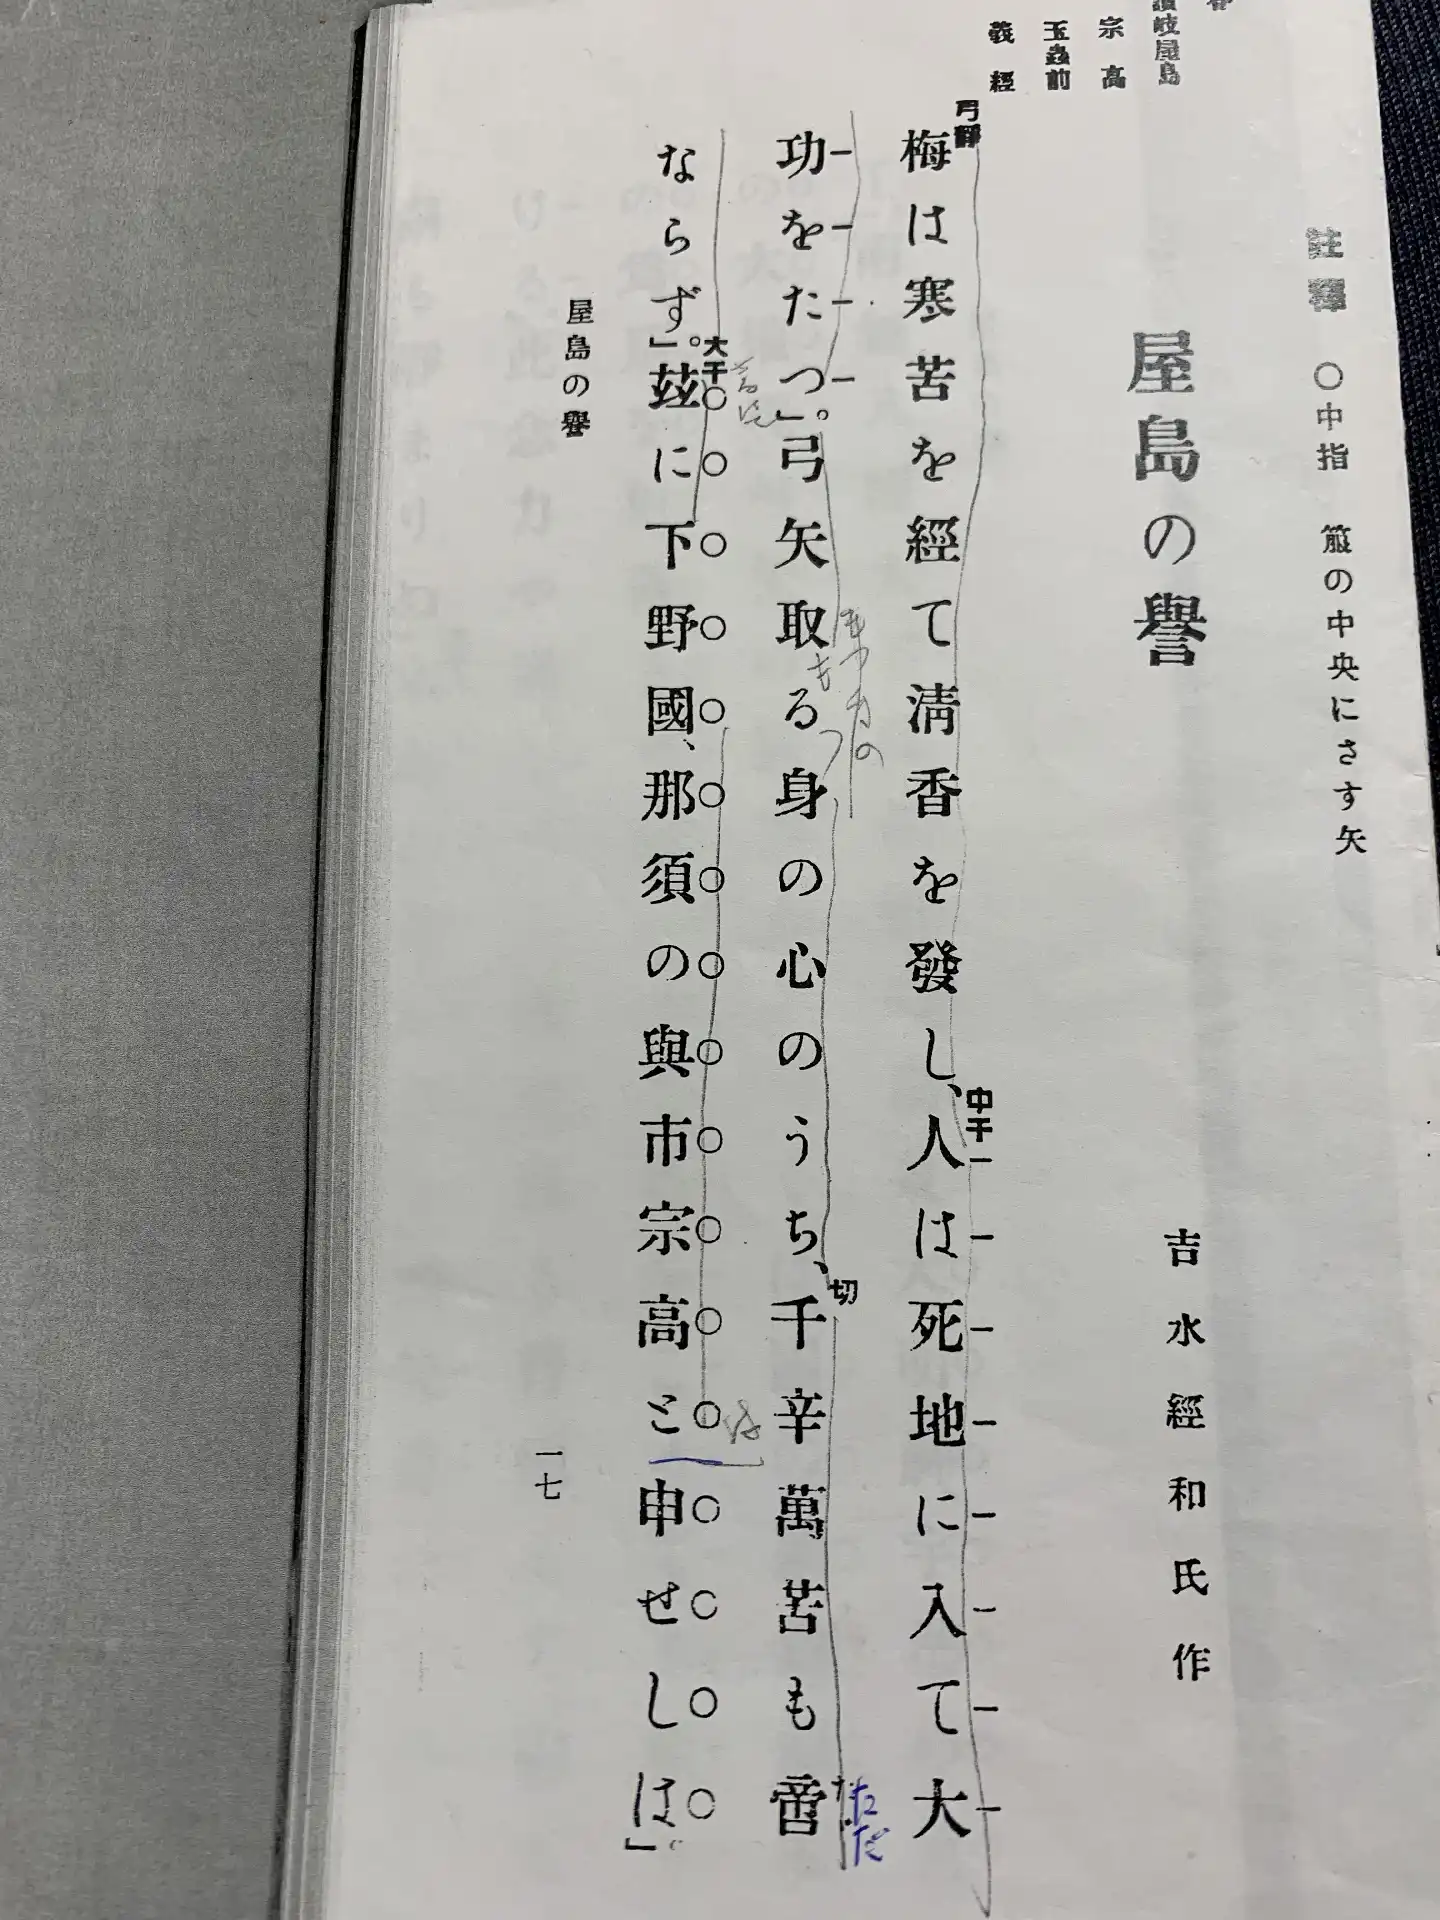 讃岐屋島
宗高
玉蟲前
義經
註釋 〇中指 箙の中央にさす矢
屋島の譽
吉水經和氏作
弓靜
梅は寒苦を經て淸香を發し、人は死地に入て大
中干
功をたつ」。弓矢取る身の心のうち、千辛萬苦も啻
切
ただ
ならず」。玆に下野國、那須の與市宗高と申せしは」。
大干
屋島の譽
一七